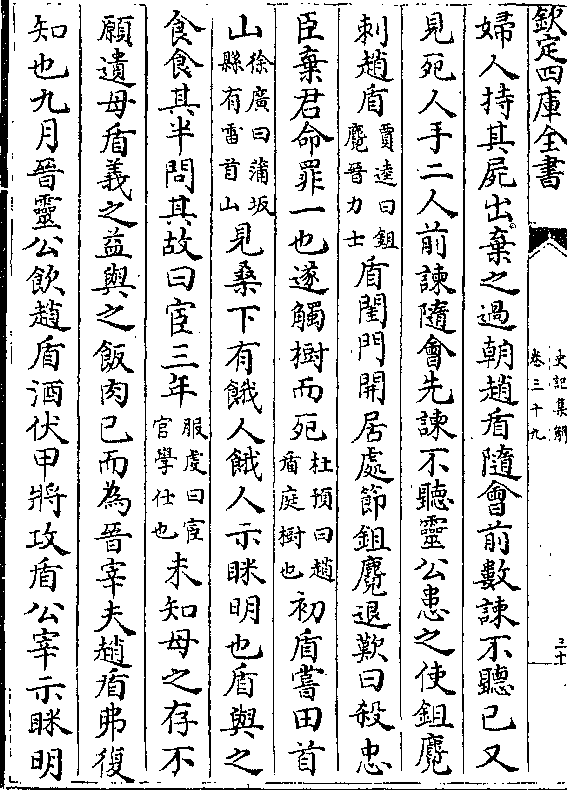 欽定四庫全書
史記集解
卷三十九
三十
婦人持其屍出棄之過朝趙盾隨會前數諫不聽已又
見死人手二人前諫隨會先諫不聽靈公患之使鉏麑
刺趙盾賈逵曰鉏麑晉力士盾閨門開居處節鉏麑退歎曰殺忠
臣棄君命罪一也遂觸樹而死杜預曰趙盾庭樹也初盾嘗田首
山徐廣曰蒲坂縣有雷首山見桑下有餓人餓人示眯明也盾與之
食食其半問其故曰宦三年服虔曰宦官學仕也未知母之存不
願遺母盾義之益與之飯肉已而為晉宰夫趙盾弗復
知也九月晉靈公飲趙盾酒伏甲將攻盾公宰示眯明